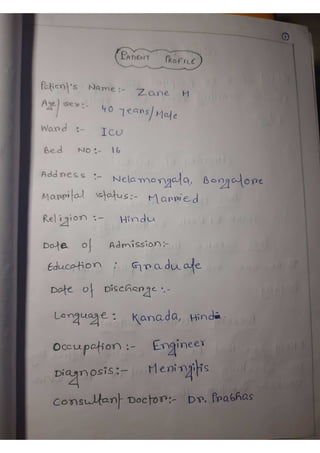 1
PATIENT PROFILE
Patient's Name:- Zane M
Age/sex:- 40 years/Male
Ward :- ICU
Bed NO:- 16
Address :- Nelamangala, Bangalore
Marrital status:- Married
Religion :- Hindu
Date of Admission:-
Education : Graduate
Date of Discharge :-
Language : Kanada, Hindi
Occupation :- Engineer
Diagnosis:- Meningitis
Consultant Doctor:- Dr. Prabhas